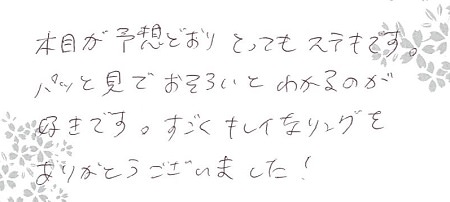 木目が予想どおり とっても ステキです。
パッと見で おそろいと わかるのが
好きです。すごく キレイなリングを
ありがとうございました!